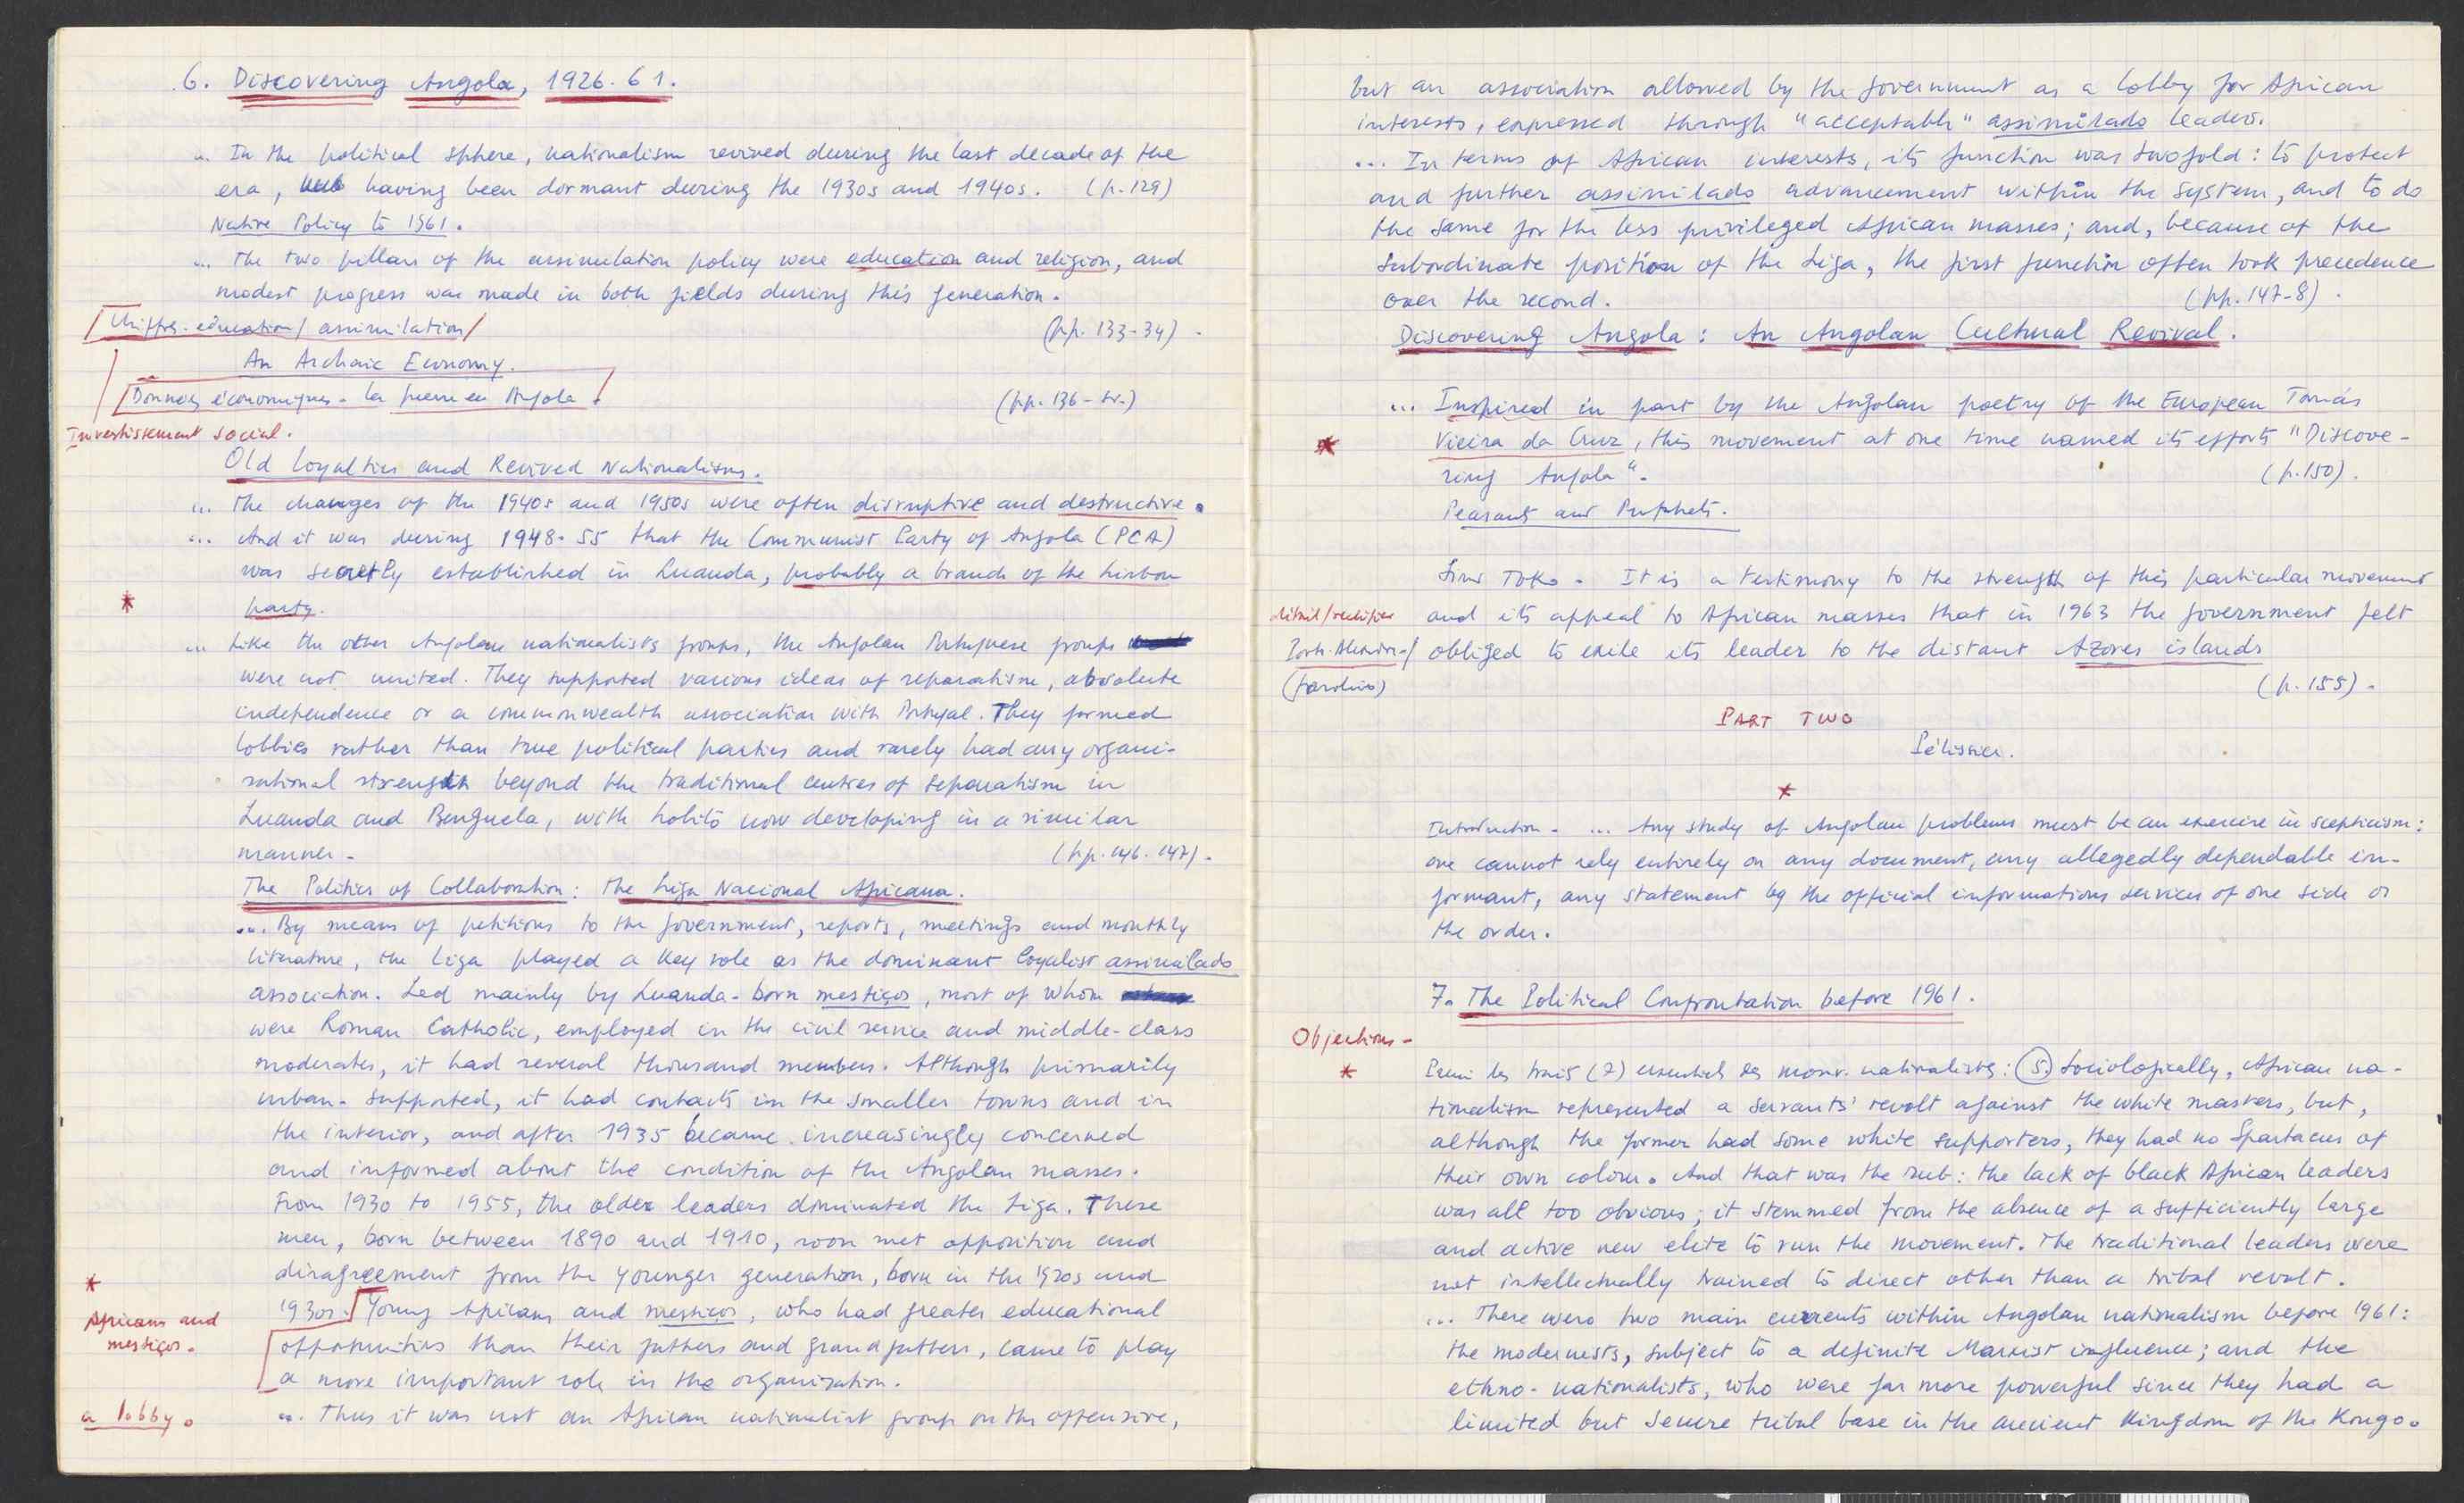 6. Discovering Angola, 1926-61.
... In the political sphere, nationalism revived during the last decade of the
era, having been dormant during the 1930s and 1940s. (p. 129)
Native Policy to 1961.
... The two pillars of the assimilation policy were education and religion, and
modest progress was made in both fields during this generation.
/Chiffres-éducation/assimilation/ (pp. 133-34).
An Archaic Economy.
Données économiques - la guerre en Angola. (pp. 136-)
Investissement social.
Old Loyalties and Revived Nationalisms.
... The changes of the 1940s and 1950s were often disruptive and destructive.
... And it was during 1948-55 that the Communist Party of Angola (PCA)
was secretly established in Luanda, probably a branch of the Lisbon
* party.
... Like the other Angolan nationalists groups, the Angolan Portuguese groups
were not united. They supported various ideas of separatism, absolute
independence or a commonwealth association with Portugal. They formed
lobbies rather than true political parties and rarely had any organi-
sational strength beyond the traditional centres of separatism in
Luanda and Benguela, with Lobito now developing in a similar
manner. (pp. 146-147).
The Politics of Collaboration: The Liga Nacional Africana.
... By means of petitions to the government, reports, meetings and monthly
literature, the Liga played a key role as the dominant loyalist assimilado
association. Led mainly by Luanda-born mestiços, most of whom
were Roman Catholic, employed in the civil service and middle-class
moderates, it had several thousand members. Although primarily
urban-supported, it had contacts in the smaller towns and in
the interior, and after 1935 became increasingly concerned
and informed about the condition of the Angolan masses.
From 1930 to 1955, the older leaders dominated the Liga. These
men, born between 1890 and 1910, soon met opposition and
disagreement from the younger generation, born in the 1920s and
*
1930s. Young Africans and mestiços, who had greater educational
Africans and
mestiços.
opportunities than their fathers and grandfathers, came to play
a more important role in the organization.
a lobby.
... Thus it was not an African nationalist group on the offensive,
but an association allowed by the government as a lobby for African
interests, expressed through "acceptable" assimilado leaders.
... In terms of African interests, its function was twofold: to protect
and further assimilado advancement within the system, and to do
the same for the less privileged African masses; and, because of the
subordinate position of the Liga, the first function often took precedence
over the second. (pp. 147-8).
Discovering Angola: An Angolan Cultural Revival.
... Inspired in part by the Angolan poetry of the European Tomás
* Vieira da Cruz, this movement at one time named its efforts "Discove-
ring Angola". (p. 150).
Peasants and Prophets.
Simão Toko. It is a testimony to the strength of this particular movement
and its appeal to African masses that in 1963 the government felt
obliged to exile its leader to the distant Azores islands
(p. 155).
PART TWO
Pélissier.
*
Introduction. ... Any study of Angolan problems must be an exercise in scepticism:
one cannot rely entirely on any document, any allegedly dependable in-
formant, any statement by the official informations services of one side or
the order.
7. The Political Confrontation before 1961.
Objections.
* Parmi les traits (7) essentiels des mouv. nationalistes: (5) Sociologically, African na-
tionalism represented a servants' revolt against the white masters, but,
although the former had some white supporters, they had no Spartacus of
their own colour. And that was the rub: the lack of black African leaders
was all too obvious; it stemmed from the absence of a sufficiently large
and active new elite to run the movement. The traditional leaders were
not intellectually trained to direct other than a tribal revolt.
... There were two main currents within Angolan nationalism before 1961:
the modernists, subject to a definite Marxist influence; and the
ethno-nationalists, who were far more powerful since they had a
limited but secure tribal base in the ancient Kingdom of the Kongo.